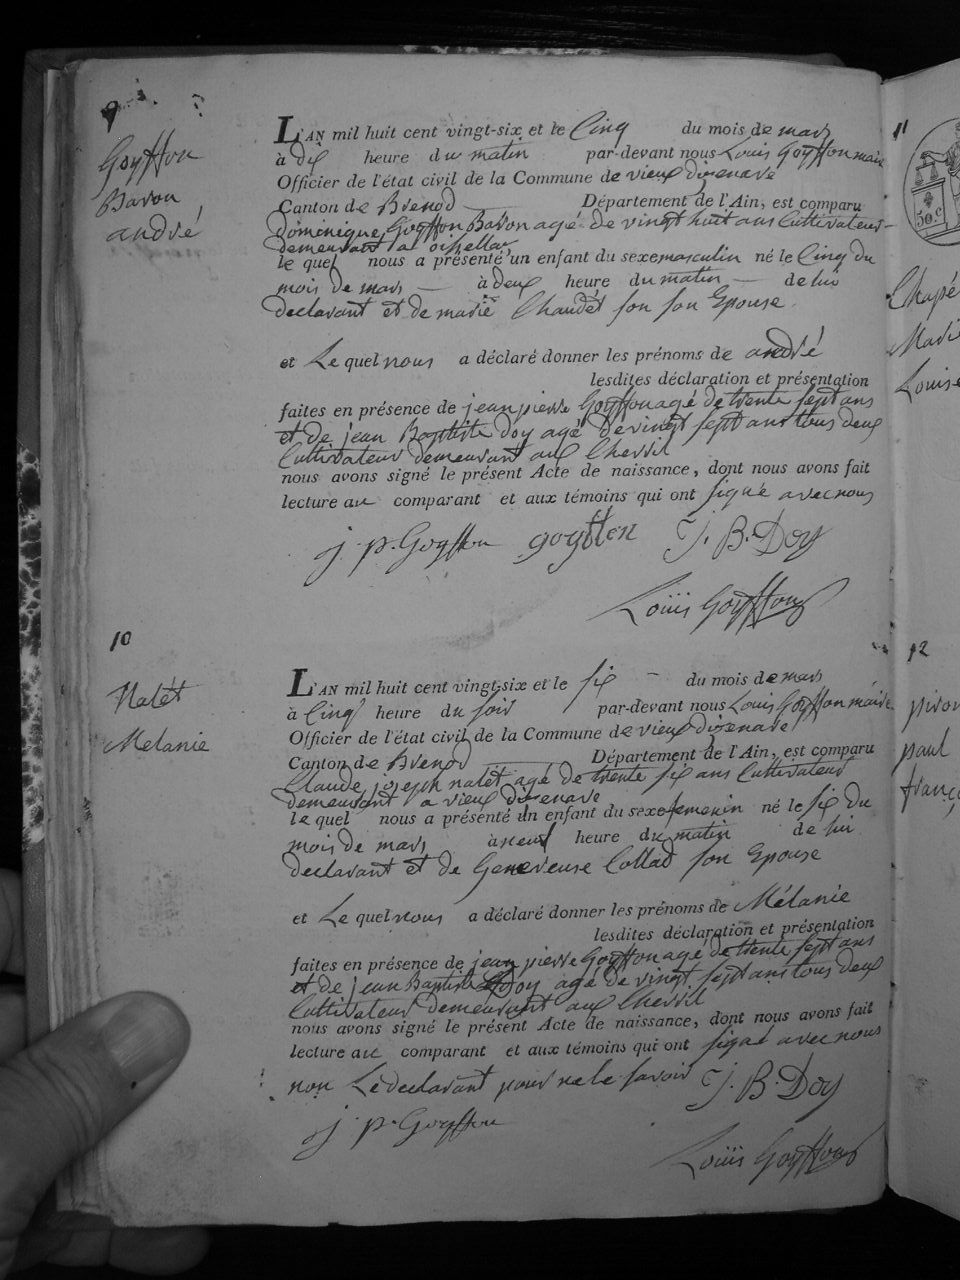 9
Goyffon
Baron
andré
L'AN mil huit cent vingt-six et le Cinq du mois de mars
à dix heure du matin par-devant nous Louis Goyffon maire
Officier de l'état civil de la Commune de vieux dizenave
Canton de Brenod Département de l'Ain, est comparu
dominique Goyffon Baron agé de vingt huit ans Cultivateur
demeurant a
le quel nous a présenté un enfant du sexe masculin né le Cinq du
mois de mars à deux heure du matin de lui
declarant et de marie Chaudet son son Epouse
et Le quel nous a déclaré donner les prénoms de andré
lesdites déclaration et présentation
faites en présence de jean pierre Goyffon agé de trente sept ans
et de jean Baptiste Doy agé de vingt sept ans tous deux
Cultivateur demeurant aux
nous avons signé le présent Acte de naissance, dont nous avons fait
lecture au comparant et aux témoins qui ont signé avec nous
j. p. Goyffon goyffon J. B. Doy
Louis Goyffon
10
Nalét
Melanie
L'AN mil huit cent vingt-six et le six du mois de mars
à Cinq heure du soir par-devant nous Louis Goyffon maire
Officier de l'état civil de la Commune de vieux dizenave
Canton de Brenod Département de l'Ain, est comparu
Claude joseph nalet agé de trente six ans Cultivateur
demeurant a vieux dizenave
le quel nous a présenté un enfant du sexe femenin né le six du
mois de mars à neuf heure du matin de lui
declarant et de Genevieuse Collad son Epouse
et Le quel nous a déclaré donner les prénoms de Mélanie
lesdites déclaration et présentation
faites en présence de jean pierre Goyffon agé de trente sept ans
et de jean Baptiste Doy agé de vingt sept ans tous deux
Cultivateur demeurant aux
nous avons signé le présent Acte de naissance, dont nous avons fait
lecture au comparant et aux témoins qui ont signé avec nous
non Le declarant pour ne le savoir J. B. Doy
j. p. Goyffon
Louis Goyffon
11
50 c
Chapé
Marie
Louise
12
piron
paul
franço